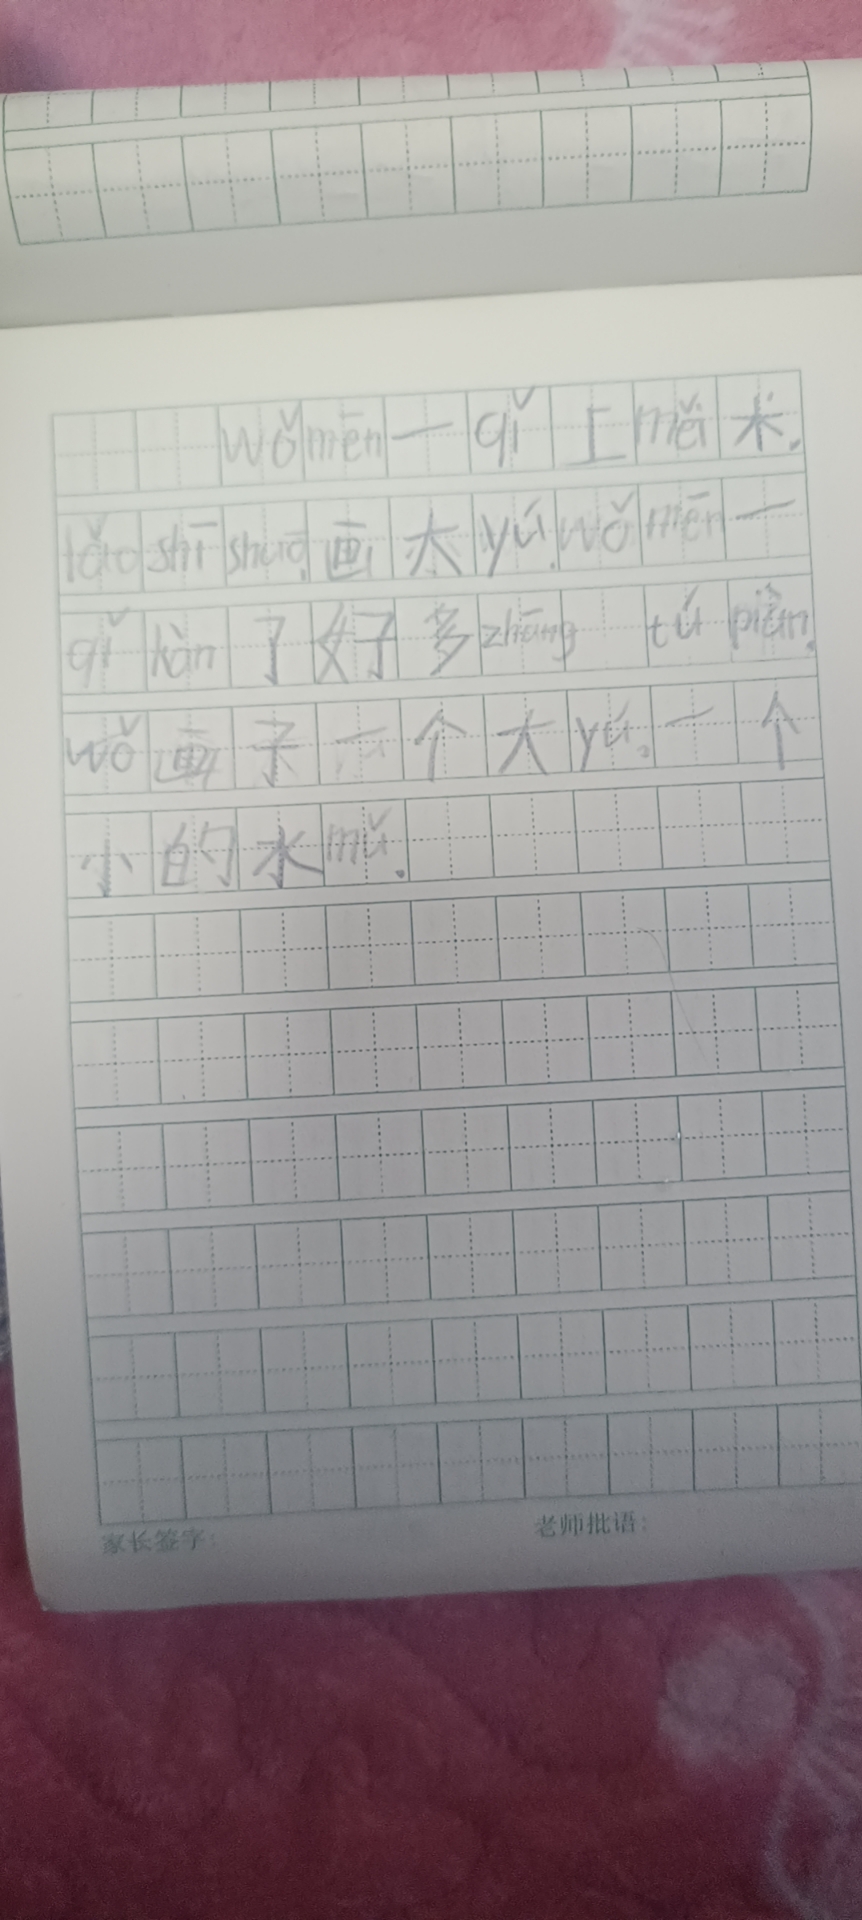 wǒ mēn 一 qǐ 上 měi 术.
lǎo shī shuō, 画 大 yú. wǒ mēn 一
qǐ kàn 了 好 多 zhāng tú piàn.
wǒ 画 了 一 个 大 yú. 一 个
小 的 水 mǔ.
家长签字:
老师批语: